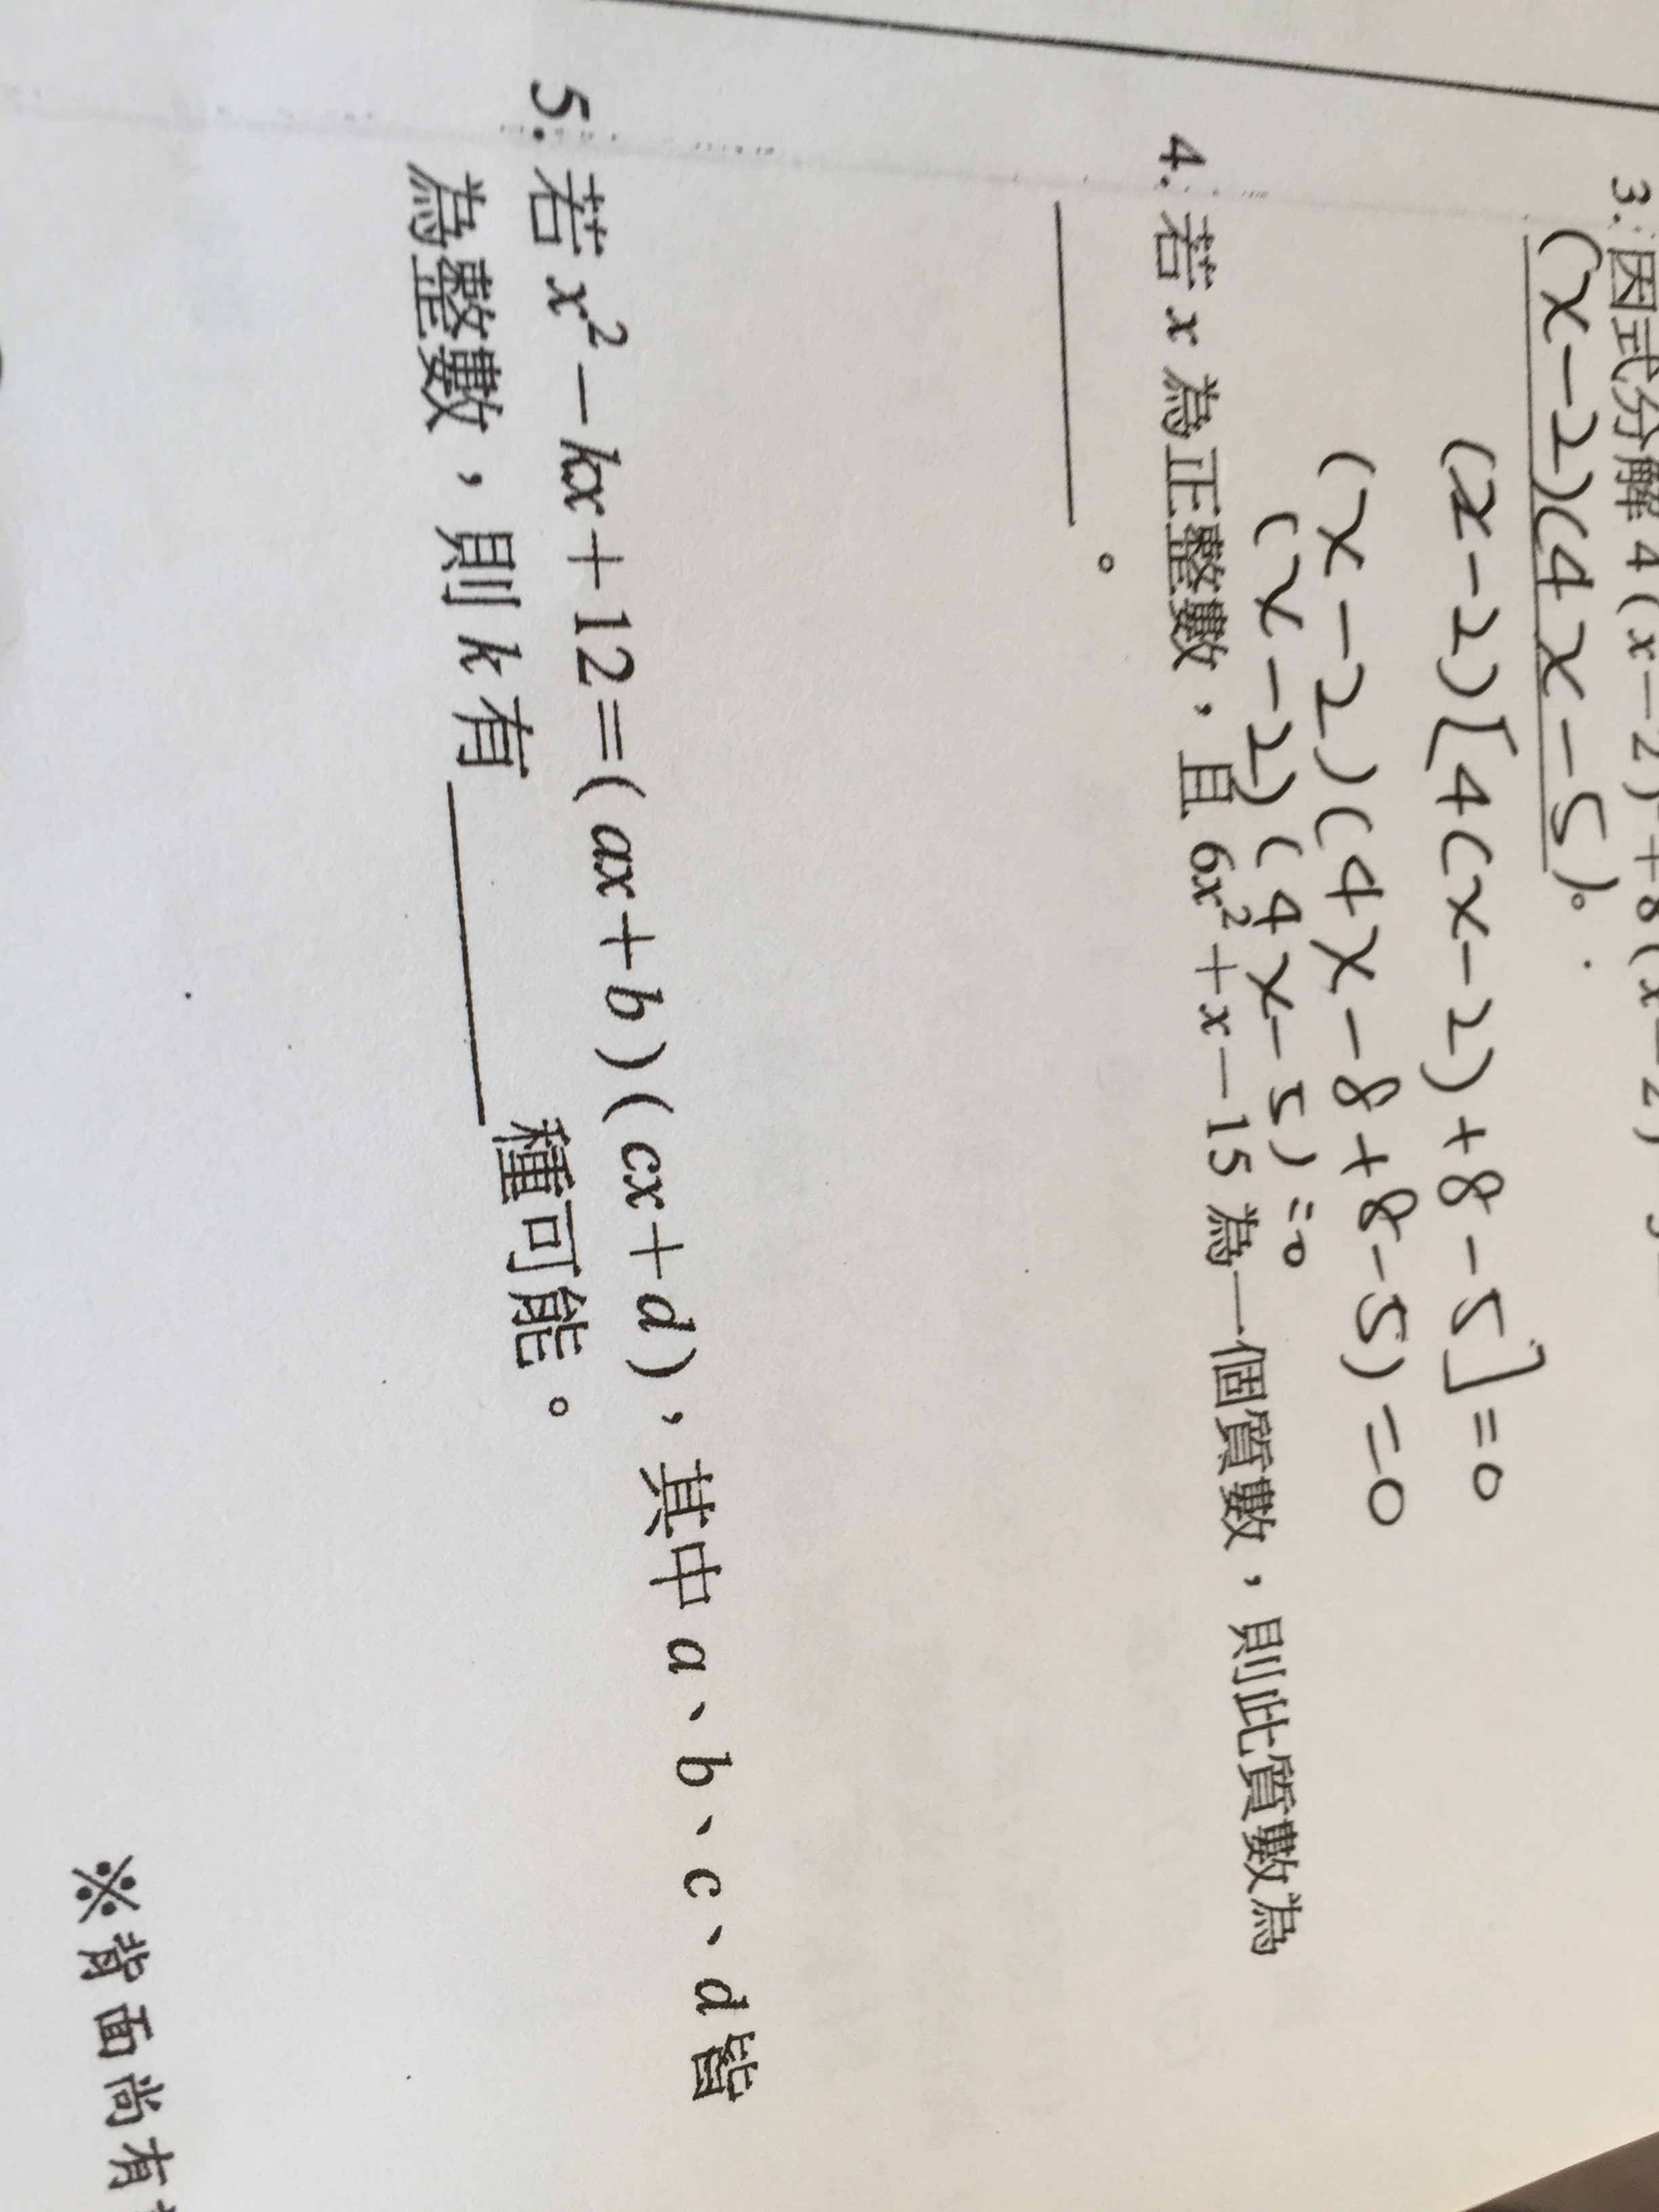 3. 因式分解 4(x-2)²+8(x-2)
(x-2)(4x-5)。
(x-2)[4(x-2)+8-5]=0
(x-2)(4x-8+8-5)=0
(x-2)(4x-5)=0
4. 若 x 為正整數，且 6x²+x-15 為一個質數，則此質數為
。
5. 若 x²-kx+12=(ax+b)(cx+d)，其中 a、b、c、d 皆
為整數，則 k 有 種可能。
※背面尚有